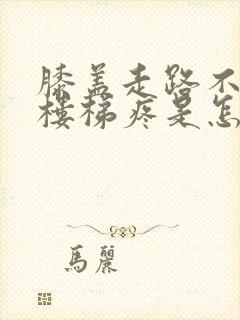 膝盖走路不
楼梯疼是怎
馬麗